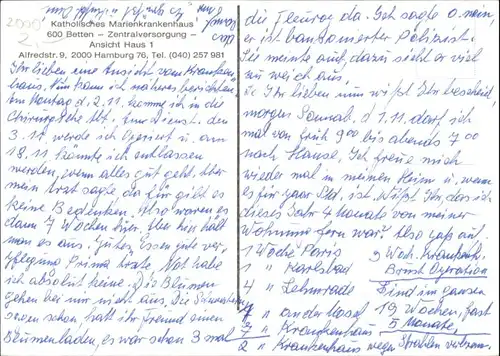 2000
2,-
Katholisches Marienkrankenhaus
600 Betten – Zentralversorgung –
Ansicht Haus 1
Alfredstr. 9, 2000 Hamburg 76, Tel. (040) 257 981
Ihr lieben eine Ansicht vom Kranken-
haus. Nun kann ich näheres berichten.
Am Montag d. 2.11. komme ich in die
Chirurgische Abt. Am Dienst. den
3.11. werde ich operiert u. am
18.11. könnte ich entlassen
werden, wenn alles gut geht. Aber
mein Arzt sagte dafür gibt es
keine Bedenken. Also waren es
dann 7 Wochen hier. Aber hier hält
man es aus. Gutes Essen gute ver-
pflegung Prima Ärzte. Not habe
ich absolut keine. Die Blumen
gehen bei mir nicht aus. Die Schwestern
sagen schon, hatt ihr Freund einen
Blumenladen, es war schon 3 mal
die Fleurop da. Ich sagte o. nein
er ist pensionierter Polizist.
Sie meinte auch, dazu sieht er viel
zu weich aus.
So Ihr lieben nun wißt Ihr bescheid
morgen Sonnab. d 1.11. darf ich
mal von früh 9 00 bis abends 7 00
nach Hause. Ich freue mich
wieder mal in meinen Heim u. wenn
es für paar Std. ist. Wißt Ihr, das ich
dieses Jahr 4 Monate von meiner
Wohnung fern war? Also paß auf.
1 Woche Paris
1 " Karlsbad
4 " Lehmrade
" an der Mosel
" Krankenhaus
2 " Krankenhaus wegen Strahlen
3 Woh. Krankenh.
Brust Operation
Sind im ganzen
19 Wochen, fast
5 Monate.